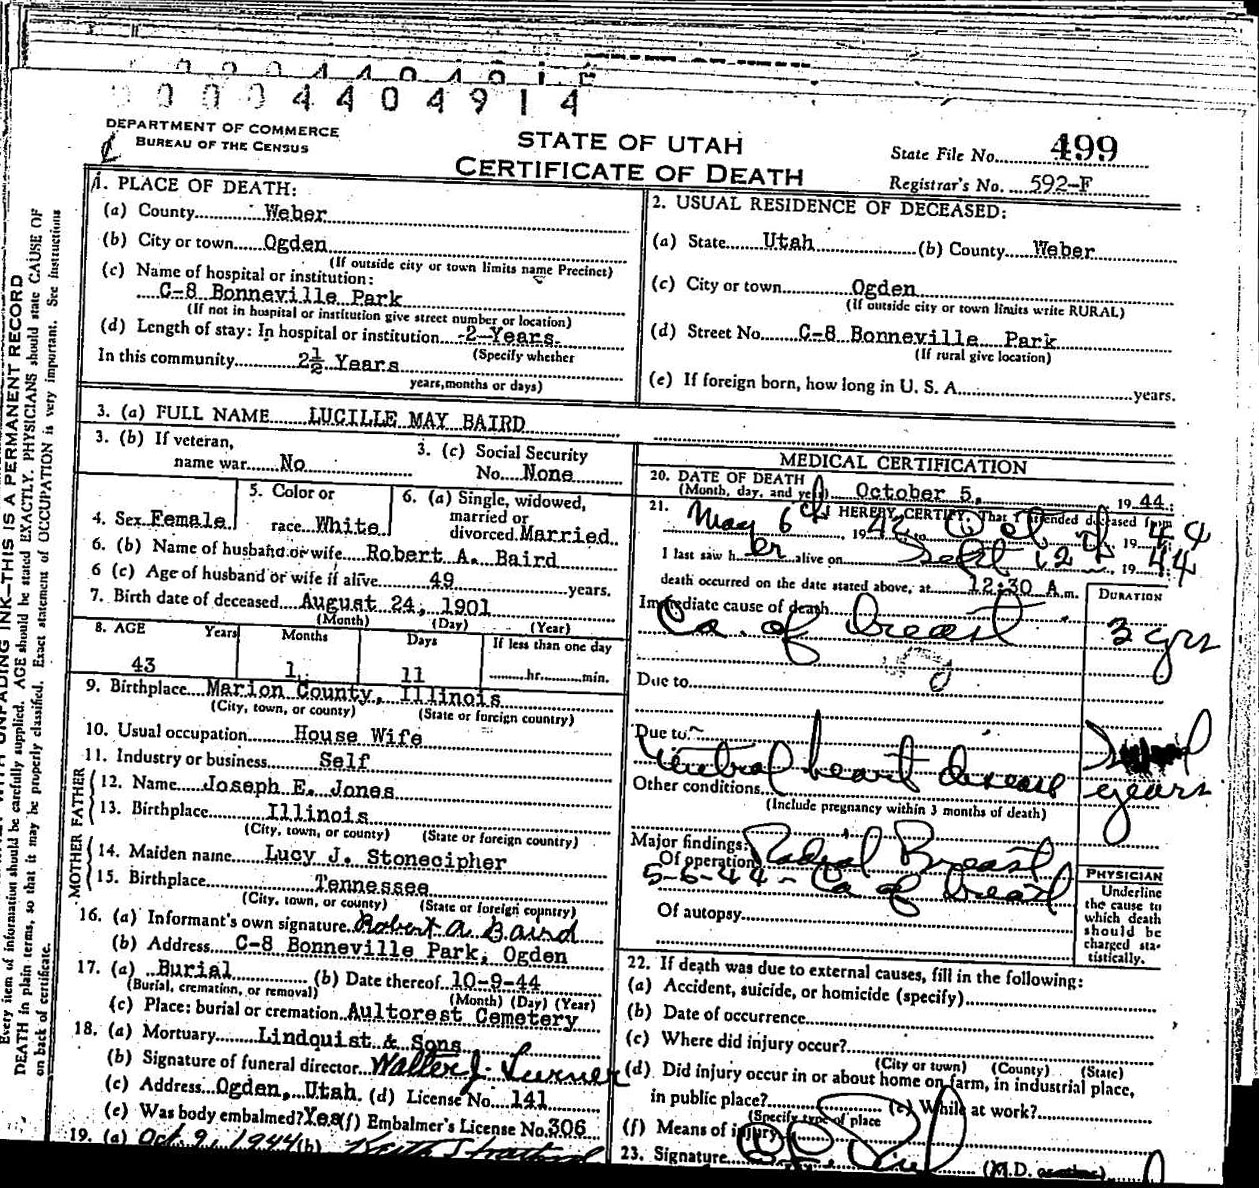 0 0 0 0 4 4 0 4 9 1 4
DEPARTMENT OF COMMERCE
BUREAU OF THE CENSUS
STATE OF UTAH
CERTIFICATE OF DEATH
State File No. 499
Registrar's No. 592-F
1. PLACE OF DEATH:
(a) County Weber
(b) City or town Ogden
(If outside city or town limits name Precinct)
(c) Name of hospital or institution:
C-8 Bonneville Park
(If not in hospital or institution give street number or location)
(d) Length of stay: In hospital or institution 2-Years.
(Specify whether
In this community 2½ Years
years, months or days)
2. USUAL RESIDENCE OF DECEASED:
(a) State Utah (b) County Weber
(c) City or town Ogden
(If outside city or town limits write RURAL)
(d) Street No. C-8 Bonneville Park
(If rural give location)
(e) If foreign born, how long in U. S. A. years.
3. (a) FULL NAME LUCILLE MAY BAIRD
3. (b) If veteran,
name war No
3. (c) Social Security
No. None
4. Sex Female
5. Color or
race White
6. (a) Single, widowed,
married or
divorced Married
6. (b) Name of husband or wife Robert A. Baird
6 (c) Age of husband or wife if alive 49 years.
7. Birth date of deceased August 24, 1901
(Month) (Day) (Year)
8. AGE Years Months Days If less than one day
43 1 11 hr. min.
9. Birthplace Marion County, Illinois
(City, town, or county) (State or foreign country)
10. Usual occupation House Wife
11. Industry or business Self
FATHER
12. Name Joseph E. Jones
13. Birthplace Illinois
(City, town, or county) (State or foreign country)
MOTHER
14. Maiden name Lucy J. Stonecipher
15. Birthplace Tennessee
(City, town, or county) (State or foreign country)
16. (a) Informant's own signature Robert A. Baird
(b) Address C-8 Bonneville Park, Ogden
17. (a) Burial (b) Date thereof 10-9-44
(Burial, cremation, or removal) (Month) (Day) (Year)
(c) Place: burial or cremation Aultorest Cemetery
18. (a) Mortuary Lindquist & Sons
(b) Signature of funeral director Walter J. Turner
(c) Address Ogden, Utah. (d) License No. 141
(e) Was body embalmed? Yes (f) Embalmer's License No. 306
19. (a) Oct 9, 1944 (b)
MEDICAL CERTIFICATION
20. DATE OF DEATH
(Month, day, and year) October 5, 1944:
21. I HEREBY CERTIFY, That I attended deceased from
May 6, 1942 to Oct 19 44
I last saw her alive on Sept 12, 1944
death occurred on the date stated above, at 12:30 A.m.
DURATION
Immediate cause of death
Ca. of breast 3 yrs
Due to
Due to
heart disease years
Other conditions
(Include pregnancy within 3 months of death)
Major findings:
Of operation Radical Breast
5-6-44 - Ca of breast
Of autopsy
PHYSICIAN
Underline
the cause to
which death
should be
charged sta-
tistically.
22. If death was due to external causes, fill in the following:
(a) Accident, suicide, or homicide (specify)
(b) Date of occurrence
(c) Where did injury occur?
(City or town) (County) (State)
(d) Did injury occur in or about home on farm, in industrial place,
in public place? (e) While at work?
(Specify type of place
(f) Means of injury
23. Signature (M.D.
Every item of information should be carefully supplied. AGE should be stated EXACTLY. PHYSICIANS should state CAUSE OF
DEATH in plain terms, so that it may be properly classified. Exact statement of OCCUPATION is very important. See instructions
on back of certificate.
UNFADING INK—THIS IS A PERMANENT RECORD